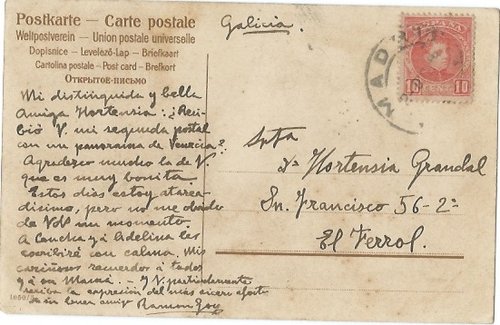 Postkarte — Carte postale
Weltpostverein — Union postale universelle
Dopisnice — Levelező-Lap — Briefkaart
Cartolina postale - Post card - Brefkort
Открытое-письмо
Galicia.
MADRID
ESPAÑA
10 CENT 10
Mi distinguida y bella
Amiga Hortensia: ¿Reci-
bió V. mi segunda postal
con un panorama de Venecia?
Agradezco mucho la de V
que es muy bonita.
Estos días estoy atarea-
dísimo, pero no me olvido
de Vds un momento.
A Concha y á Adelina les
escribiré con calma. Mis
cariñosos recuerdos á todos
y á su Mamá. — Y V. particularmente
reciba la expresión del más sincero afecto
de su buen amigo Ramon
Srta
Dª Hortensia Grandal
Sn. Francisco 56-2º
El Ferrol.